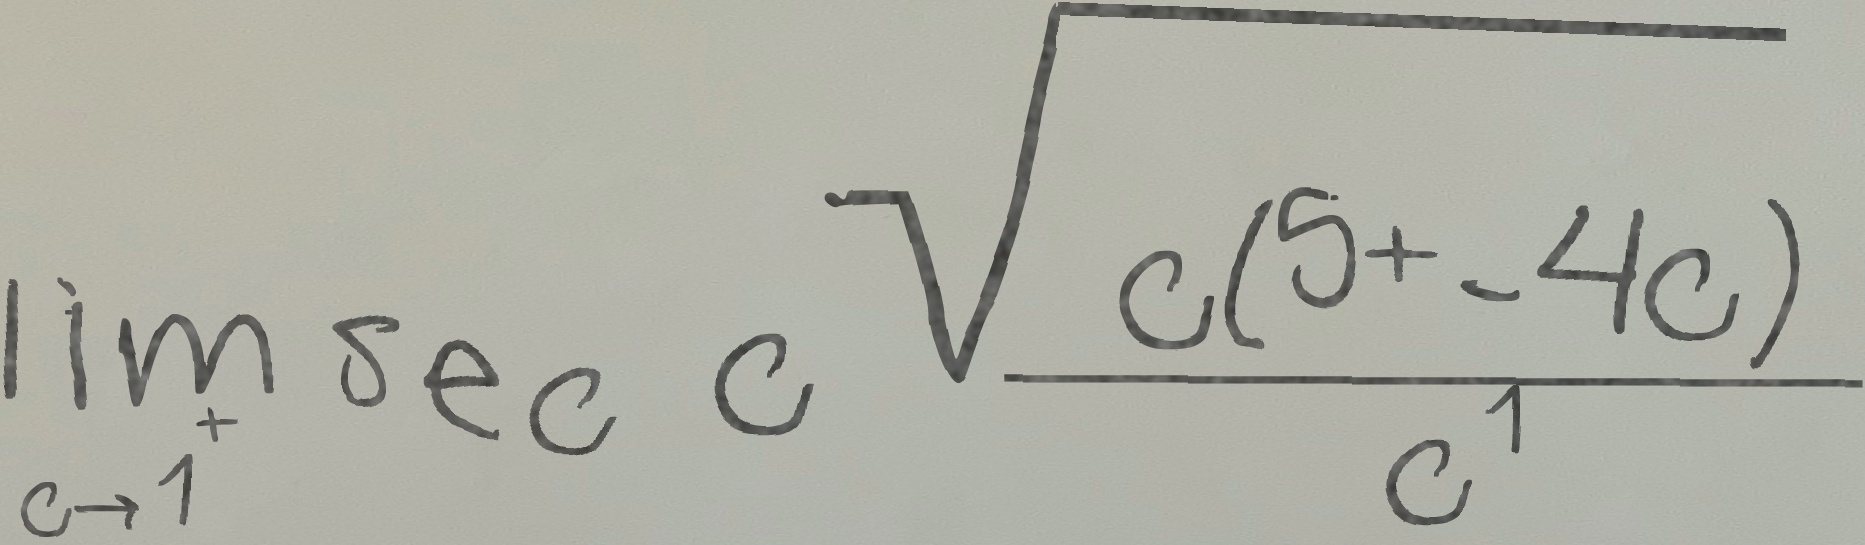 \lim_{c \to 1^{+}} \sec c \sqrt{\frac{c(5+-4c)}{c^{1}}}